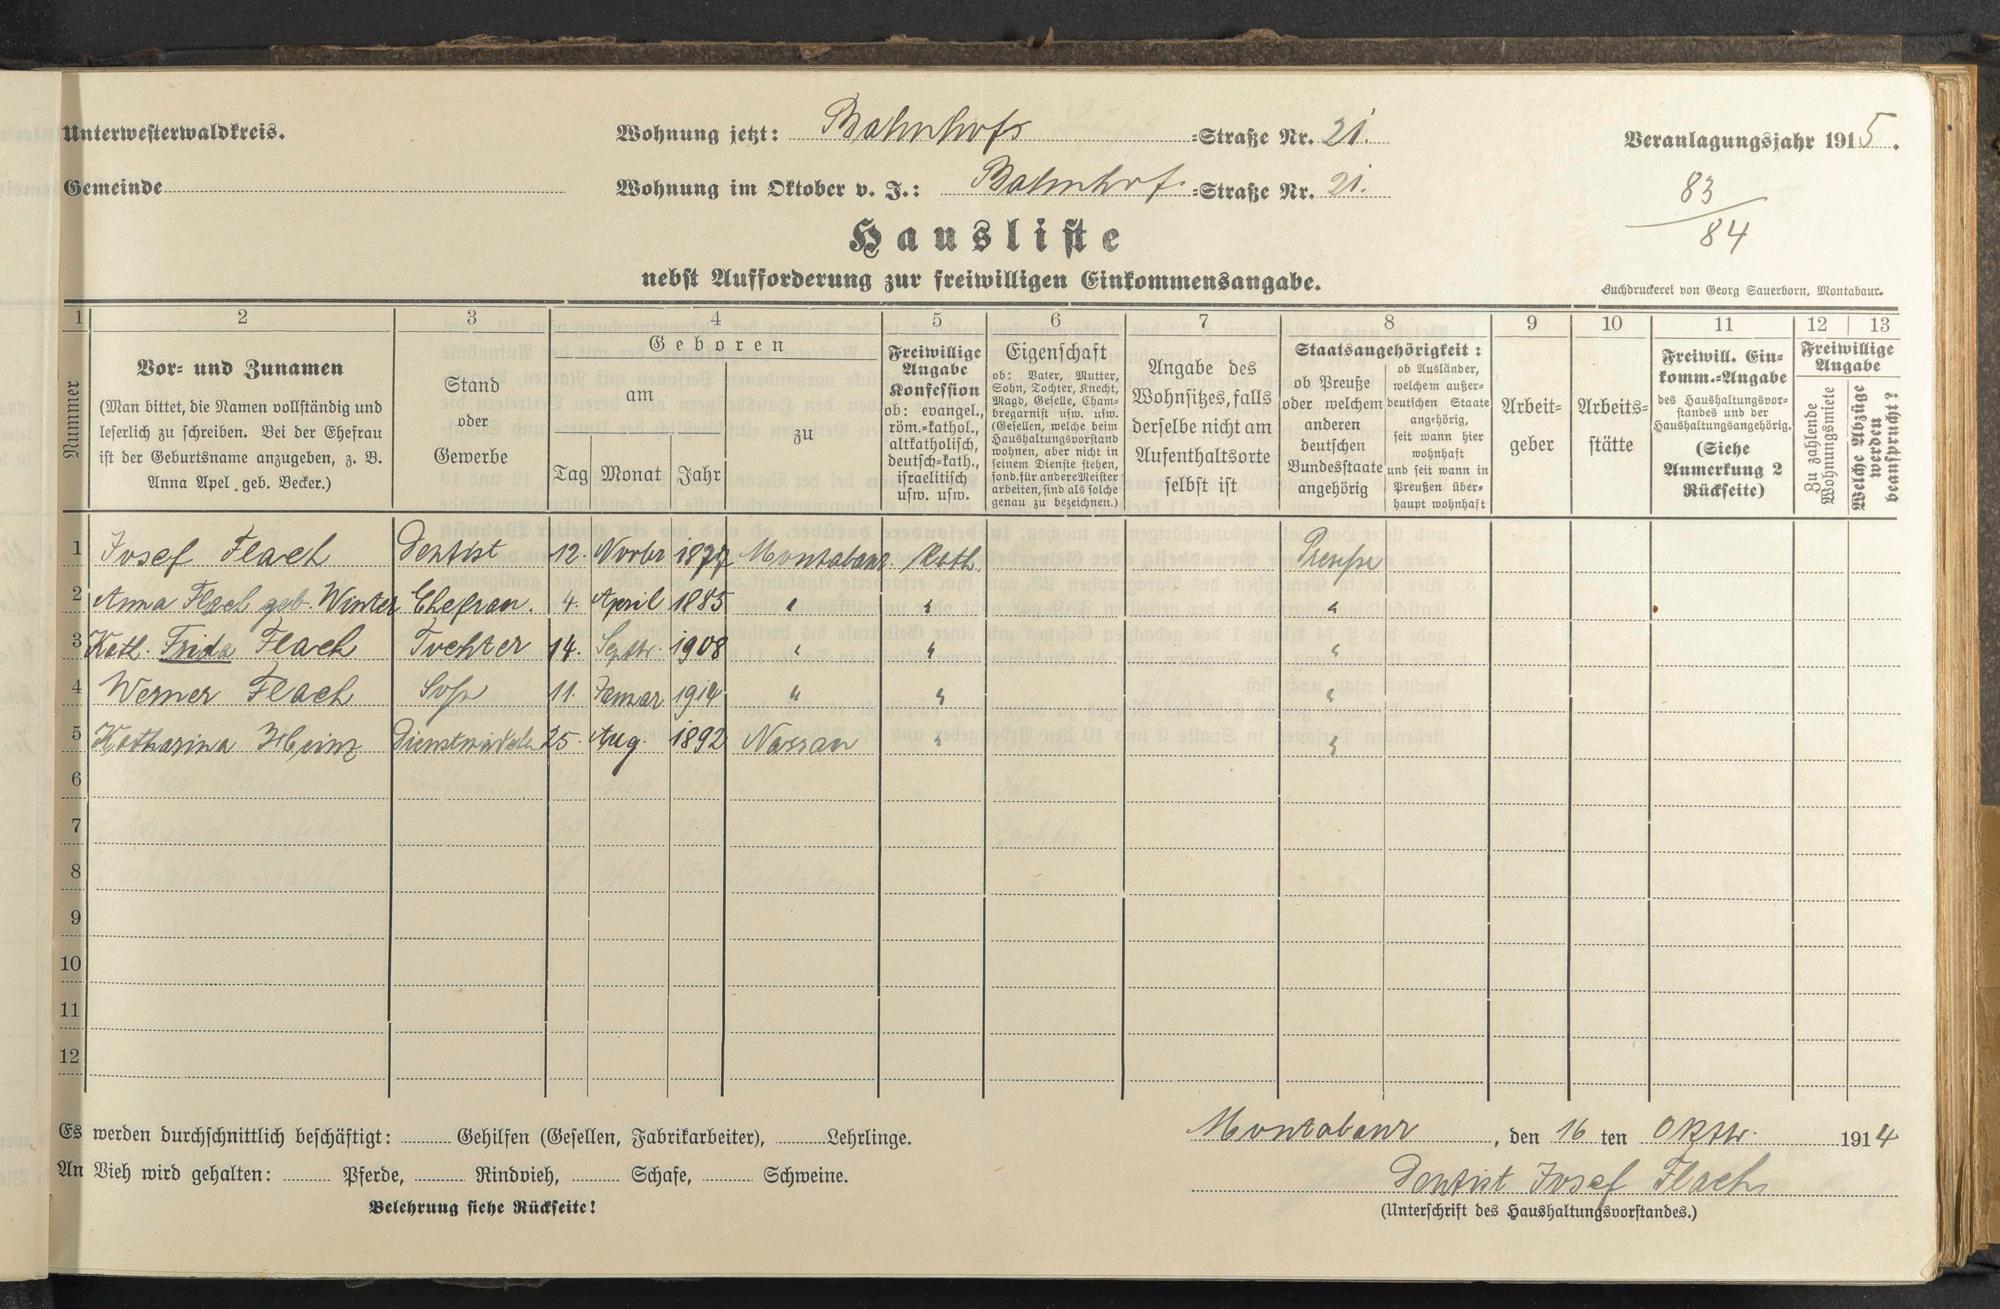 Unterwesterwaldkreis.
Wohnung jetzt: Bahnhofs-Straße Nr. 21.
Veranlagungsjahr 1915.
Gemeinde
Wohnung im Oktober v. J.: Bahnhof-Straße Nr. 21.
83
84
Hausliste
nebst Aufforderung zur freiwilligen Einkommensangabe.
Buchdruckerei von Georg Sauerborn, Montabaur.
1 2 3 4 5 6 7 8 9 10 11 12 13
Nummer
Vor- und Zunamen
(Man bittet, die Namen vollständig und
leserlich zu schreiben. Bei der Ehefrau
ist der Geburtsname anzugeben, z. B.
Anna Apel, geb. Becker.)
Stand
oder
Gewerbe
Geboren
am
Tag Monat Jahr
zu
Freiwillige
Angabe
Konfession
ob: evangel.,
röm.-kathol.,
altkatholisch,
deutsch-kath.,
israelitisch
usw. usw.
Eigenschaft
ob: Vater, Mutter,
Sohn, Tochter, Knecht,
Magd, Geselle, Cham-
bregarnist usw. usw.
(Gesellen, welche beim
Haushaltungsvorstand
wohnen, aber nicht in
seinem Dienste stehen,
sond. für andere Meister
arbeiten, sind als solche
genau zu bezeichnen.)
Angabe des
Wohnsitzes, falls
derselbe nicht am
Aufenthaltsorte
selbst ist
Staatsangehörigkeit:
ob Preuße
oder welchem
anderen
deutschen
Bundesstaate
angehörig
ob Ausländer,
welchem außer-
deutschen Staate
angehörig,
seit wann hier
wohnhaft
und seit wann in
Preußen über-
haupt wohnhaft
Arbeit-
geber
Arbeits-
stätte
Freiwill. Ein-
komm.-Angabe
des Haushaltungsvor-
standes und der
Haushaltungsangehörig.
(Siehe
Anmerkung 2
Rückseite)
Freiwillige
Angabe
Zu zahlende
Wohnungsmiete
Welche Abzüge
werden
beansprucht?
1 Josef Flach Dentist 12. Novbr 1877 Montabaur. Kath. Preuße
2 Anna Flach geb. Winter Ehefrau. 4. April 1885 " " "
3 Kath. Frida Flach Tochter 14. Septbr. 1908 " " "
4 Werner Flach Sohn 11. Januar 1914 " " "
5 Katharina Heinz Dienstmädch. 25. Aug. 1892 Nassau " "
6
7
8
9
10
11
12
Es werden durchschnittlich beschäftigt: Gehilfen (Gesellen, Fabrikarbeiter), Lehrlinge.
Montabaur, den 16 ten Oktbr. 1914
An Vieh wird gehalten: Pferde, Rindvieh, Schafe, Schweine.
Dentist Josef Flach
Belehrung siehe Rückseite!
(Unterschrift des Haushaltungsvorstandes.)